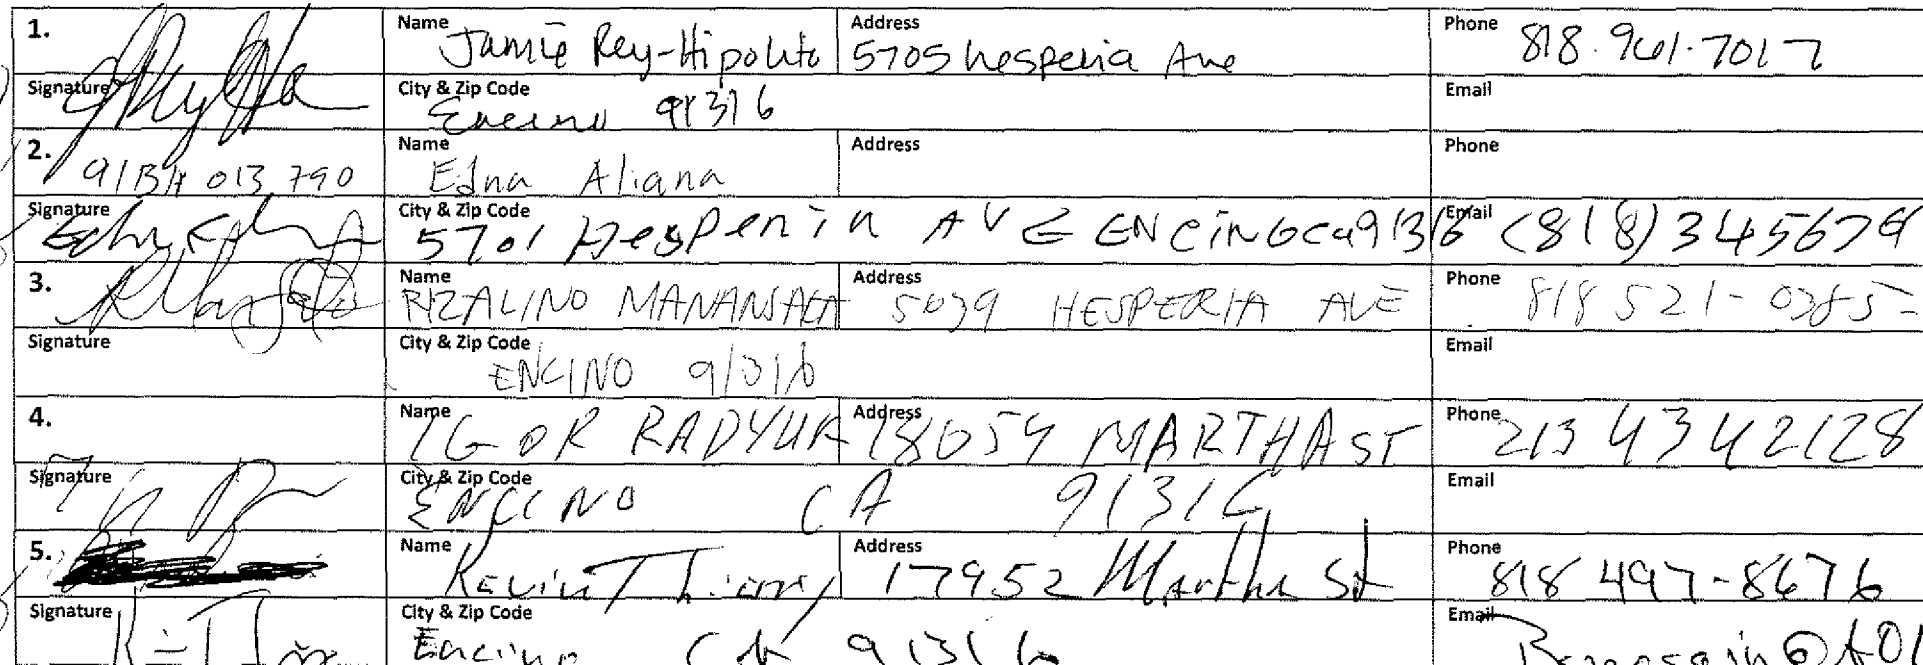 1. Name Jamie Rey-Hipolito Address 5705 hesperia Ave Phone 818.961.7017
Signature City & Zip Code Encino 91316 Email
2. Name Edna Aliana Address Phone
Signature City & Zip Code 5701 Hesperia AVE ENCiNO ca 91316 Email (818) 345679
3. Name RIZALINO MANANSALA Address 5039 HESPERIA AVE Phone 818 521-0385
Signature City & Zip Code ENCINO 91316 Email
4. Name IGOR RADYUK Address 18059 MARTHA ST Phone 213 4342128
Signature City & Zip Code ENCINO CA 91316 Email
5. Name Kevin Thierry Address 17952 Martha St Phone 818 497-8676
Signature City & Zip Code Encino CA 91316 Email